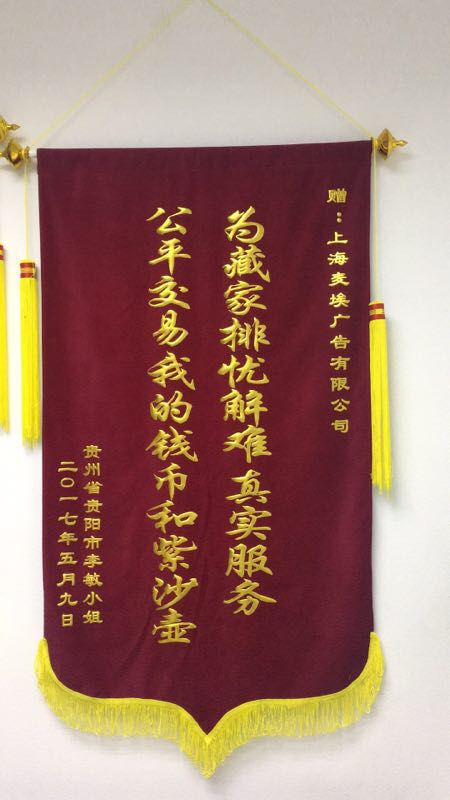 赠：上海麦埃广告有限公司
为藏家排忧解难真实服务
公平交易我的钱币和紫沙壶
贵州省贵阳市李敏小姐
二〇一七年五月九日